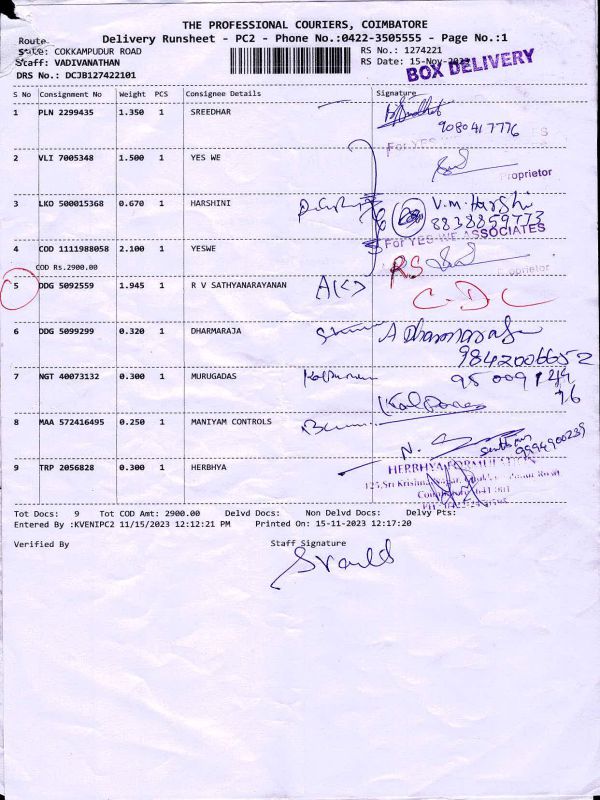 THE PROFESSIONAL COURIERS, COIMBATORE
Delivery Runsheet - PC2 - Phone No.:0422-3505555 - Page No.:1
Route
State: COKKAMPUDUR ROAD
RS No.: 1274221
Staff: VADIVANATHAN
RS Date: 15-Nov-2023
BOX DELIVERY
DRS No.: DCJB127422101
S No Consignment No Weight PCS Consignee Details Signature
1 PLN 2299435 1.350 1 SREEDHAR
9080417776
2 VLI 7005348 1.500 1 YES WE
Proprietor
3 LKO 500015368 0.670 1 HARSHINI
V.M. Harshi
8838859773
For YES-WE ASSOCIATES
4 COD 1111988058 2.100 1 YESWE
COD RS.2900.00
RS
Proprietor
5 DDG 5092559 1.945 1 R V SATHYANARAYANAN
6 DDG 5099299 0.320 1 DHARMARAJA
9842006652
7 NGT 40073132 0.300 1 MURUGADAS
8 MAA 572416495 0.250 1 MANIYAM CONTROLS
9994900239
9 TRP 2056828 0.300 1 HERBHYA
Tot Docs: 9 Tot COD Amt: 2900.00 Delvd Docs: Non Delvd Docs: Delvy Pts:
Entered By :KVENIPC2 11/15/2023 12:12:21 PM Printed On: 15-11-2023 12:17:20
Verified By Staff Signature